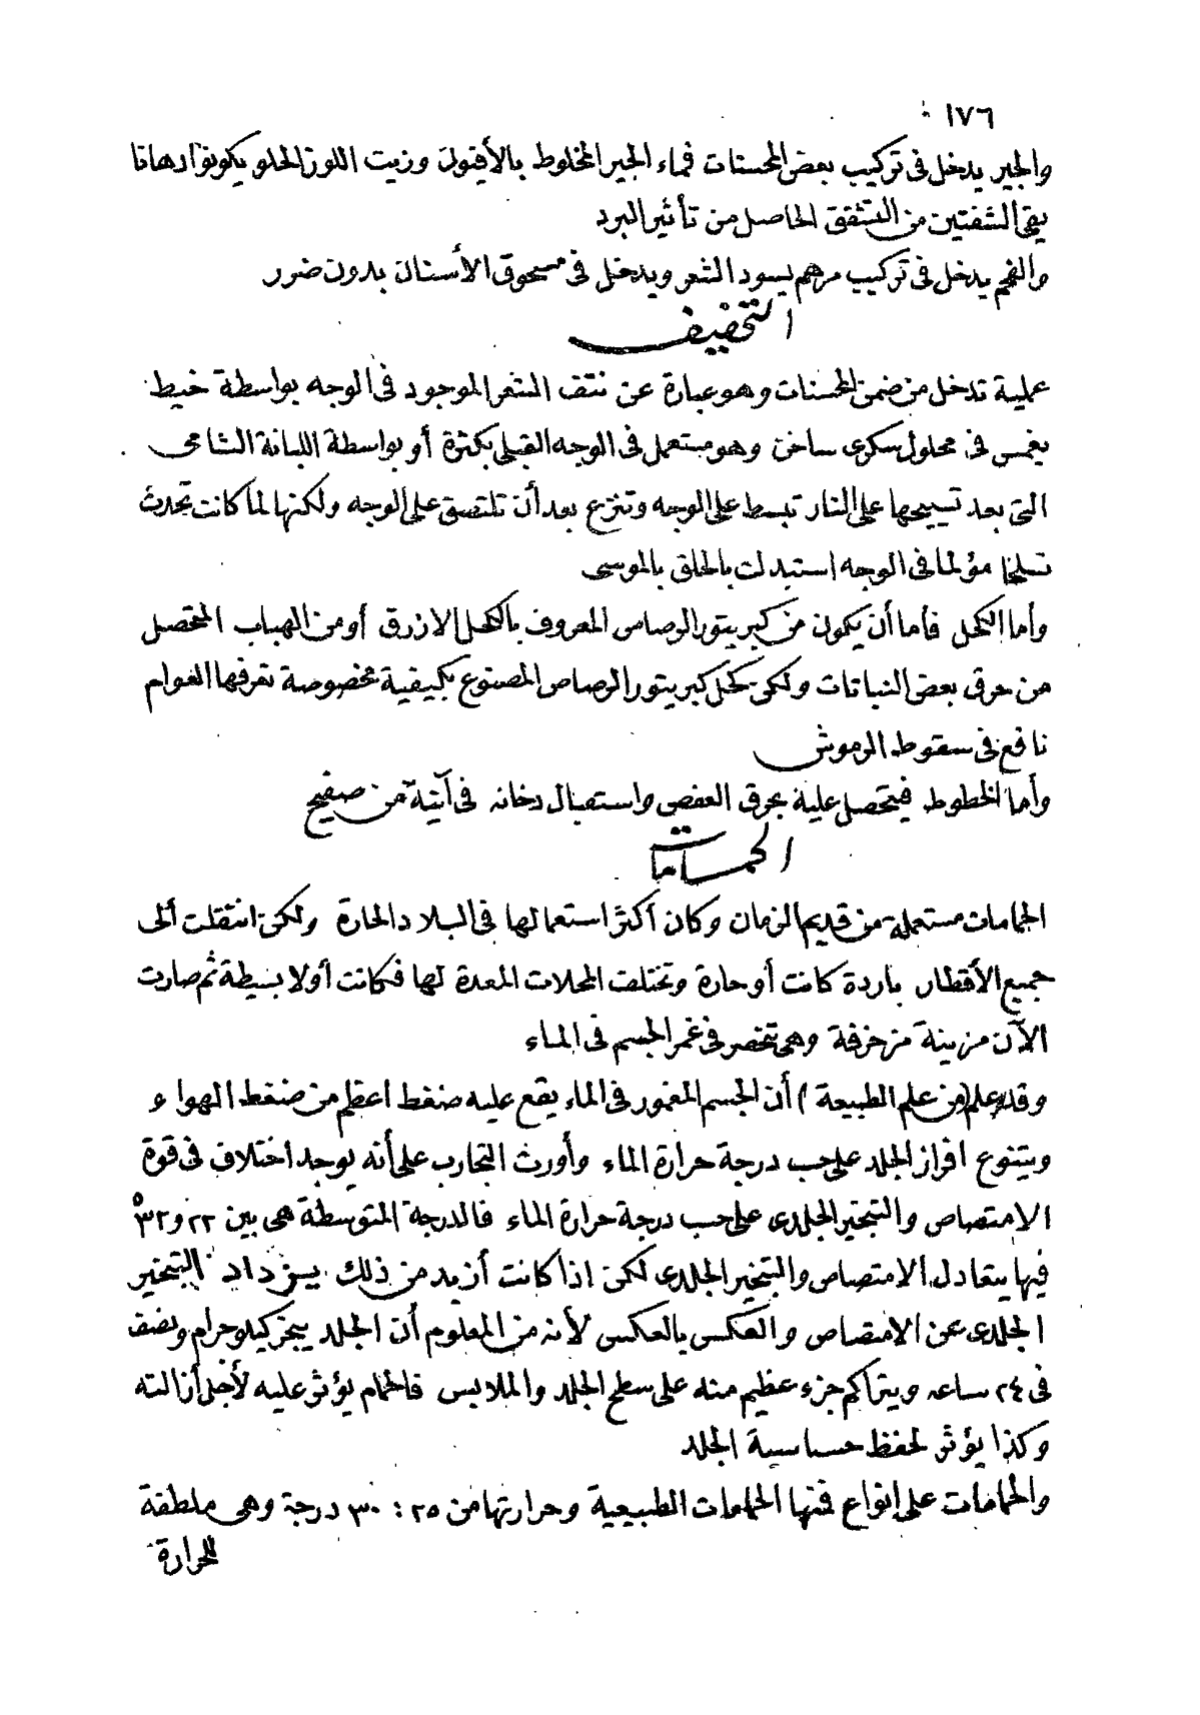 ١٧٦
والجير يدخل في تركيب بعض المحسنات فماء الجير المخلوط بالأفيون وزيت اللوز الحلو يكونوا دهانا
يقي الشفتين من التشقق الحاصل من تأثير البرد
والفحم يدخل في تركيب مرهم يسود الشعر ويدخل في مسحوق الأسنان بدون ضرر
التخفيف
عملية تدخل من ضمن المحسنات وهو عبارة عن نتف الشعر الموجود في الوجه بواسطة خيط
يغمس في محلول سكرى ساخن وهو مستعمل في الوجه القبلى بكثرة أو بواسطة اللبانة الشامى
التى بعد تسييحها على النار تبسط على الوجه وتنزع بعد أن تلتصق على الوجه ولكنها لما كانت تحدث
تسلخا مؤلما في الوجه استبدلت بالحلق بالموسى
وأما الكحل فأما أن يكون من كبريتور الرصاص المعروف بالكحل الازرق أو من الهباب المتحصل
من حرق بعض النباتات ولكن كحل كبريتور الرصاص المصنوع بكيفية مخصوصة تعرفها العوام
نافع في سقوط الرموش
وأما الخطوط فيتحصل عليه بحرق العفص واستقبال دخانه في آنية من صفيح
الحمامات
الحمامات مستعملة من قديم الزمان وكان أكثر استعمالها في البلاد الحارة ولكن انتقلت ألى
جميع الأقطار باردة كانت أو حارة وتختلف المحلات المعدة لها فكانت أولا بسيطة ثم صارت
الآن مزينة مزخرفة وهى تنحصر في غمر الجسم في الماء
وقد علم (من علم الطبيعة) أن الجسم المغمور في الماء يقع عليه ضغط اعظم من ضغط الهواء
ويتنوع افراز الجلد على حسب درجة حرارة الماء وأورث التجارب على أنه يوجد اختلاف في قوة
الامتصاص والتبخير الجلدى على حسب درجة حرارة الماء فالدرجة المتوسطة هى بين ٢٢ و ٣٢°
فيها يتعادل الامتصاص والتبخير الجلدى لكن اذا كانت أزيد من ذلك يزداد التبخير
الجلدى عن الامتصاص والعكس بالعكس لأنه من المعلوم أن الجلد يبخر كيلوجرام ونصف
في ٢٤ ساعه ويتراكم جزء عظيم منه على سطح الجلد والملابس فالحمام يؤثر عليه لأجل أزالته
وكذا يؤثر لحفظ حساسية الجلد
والحمامات على انواع فمنها الحمامات الطبيعية وحرارتها من ٢٥ : ٣٠ درجة وهى ملطفة
للحرارة